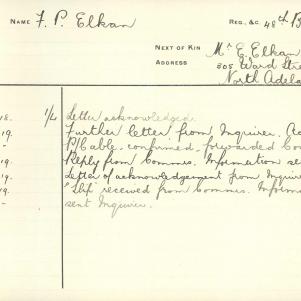 NAME F. P. Elkan REG., &C. 48th B
NEXT OF KIN Mr E. Elkan
ADDRESS 305 Ward Stre
North Adela
18. 1/4 Letter acknowledged
19. Further letter from Inquirer. Ac
- P/Cable confirmed - forwarded Co
19. Reply from Commrs. Information sen
19. Letter of acknowledgement from Inquire
19. "Slip" received from Commrs. Inform
- sent Inquirer.